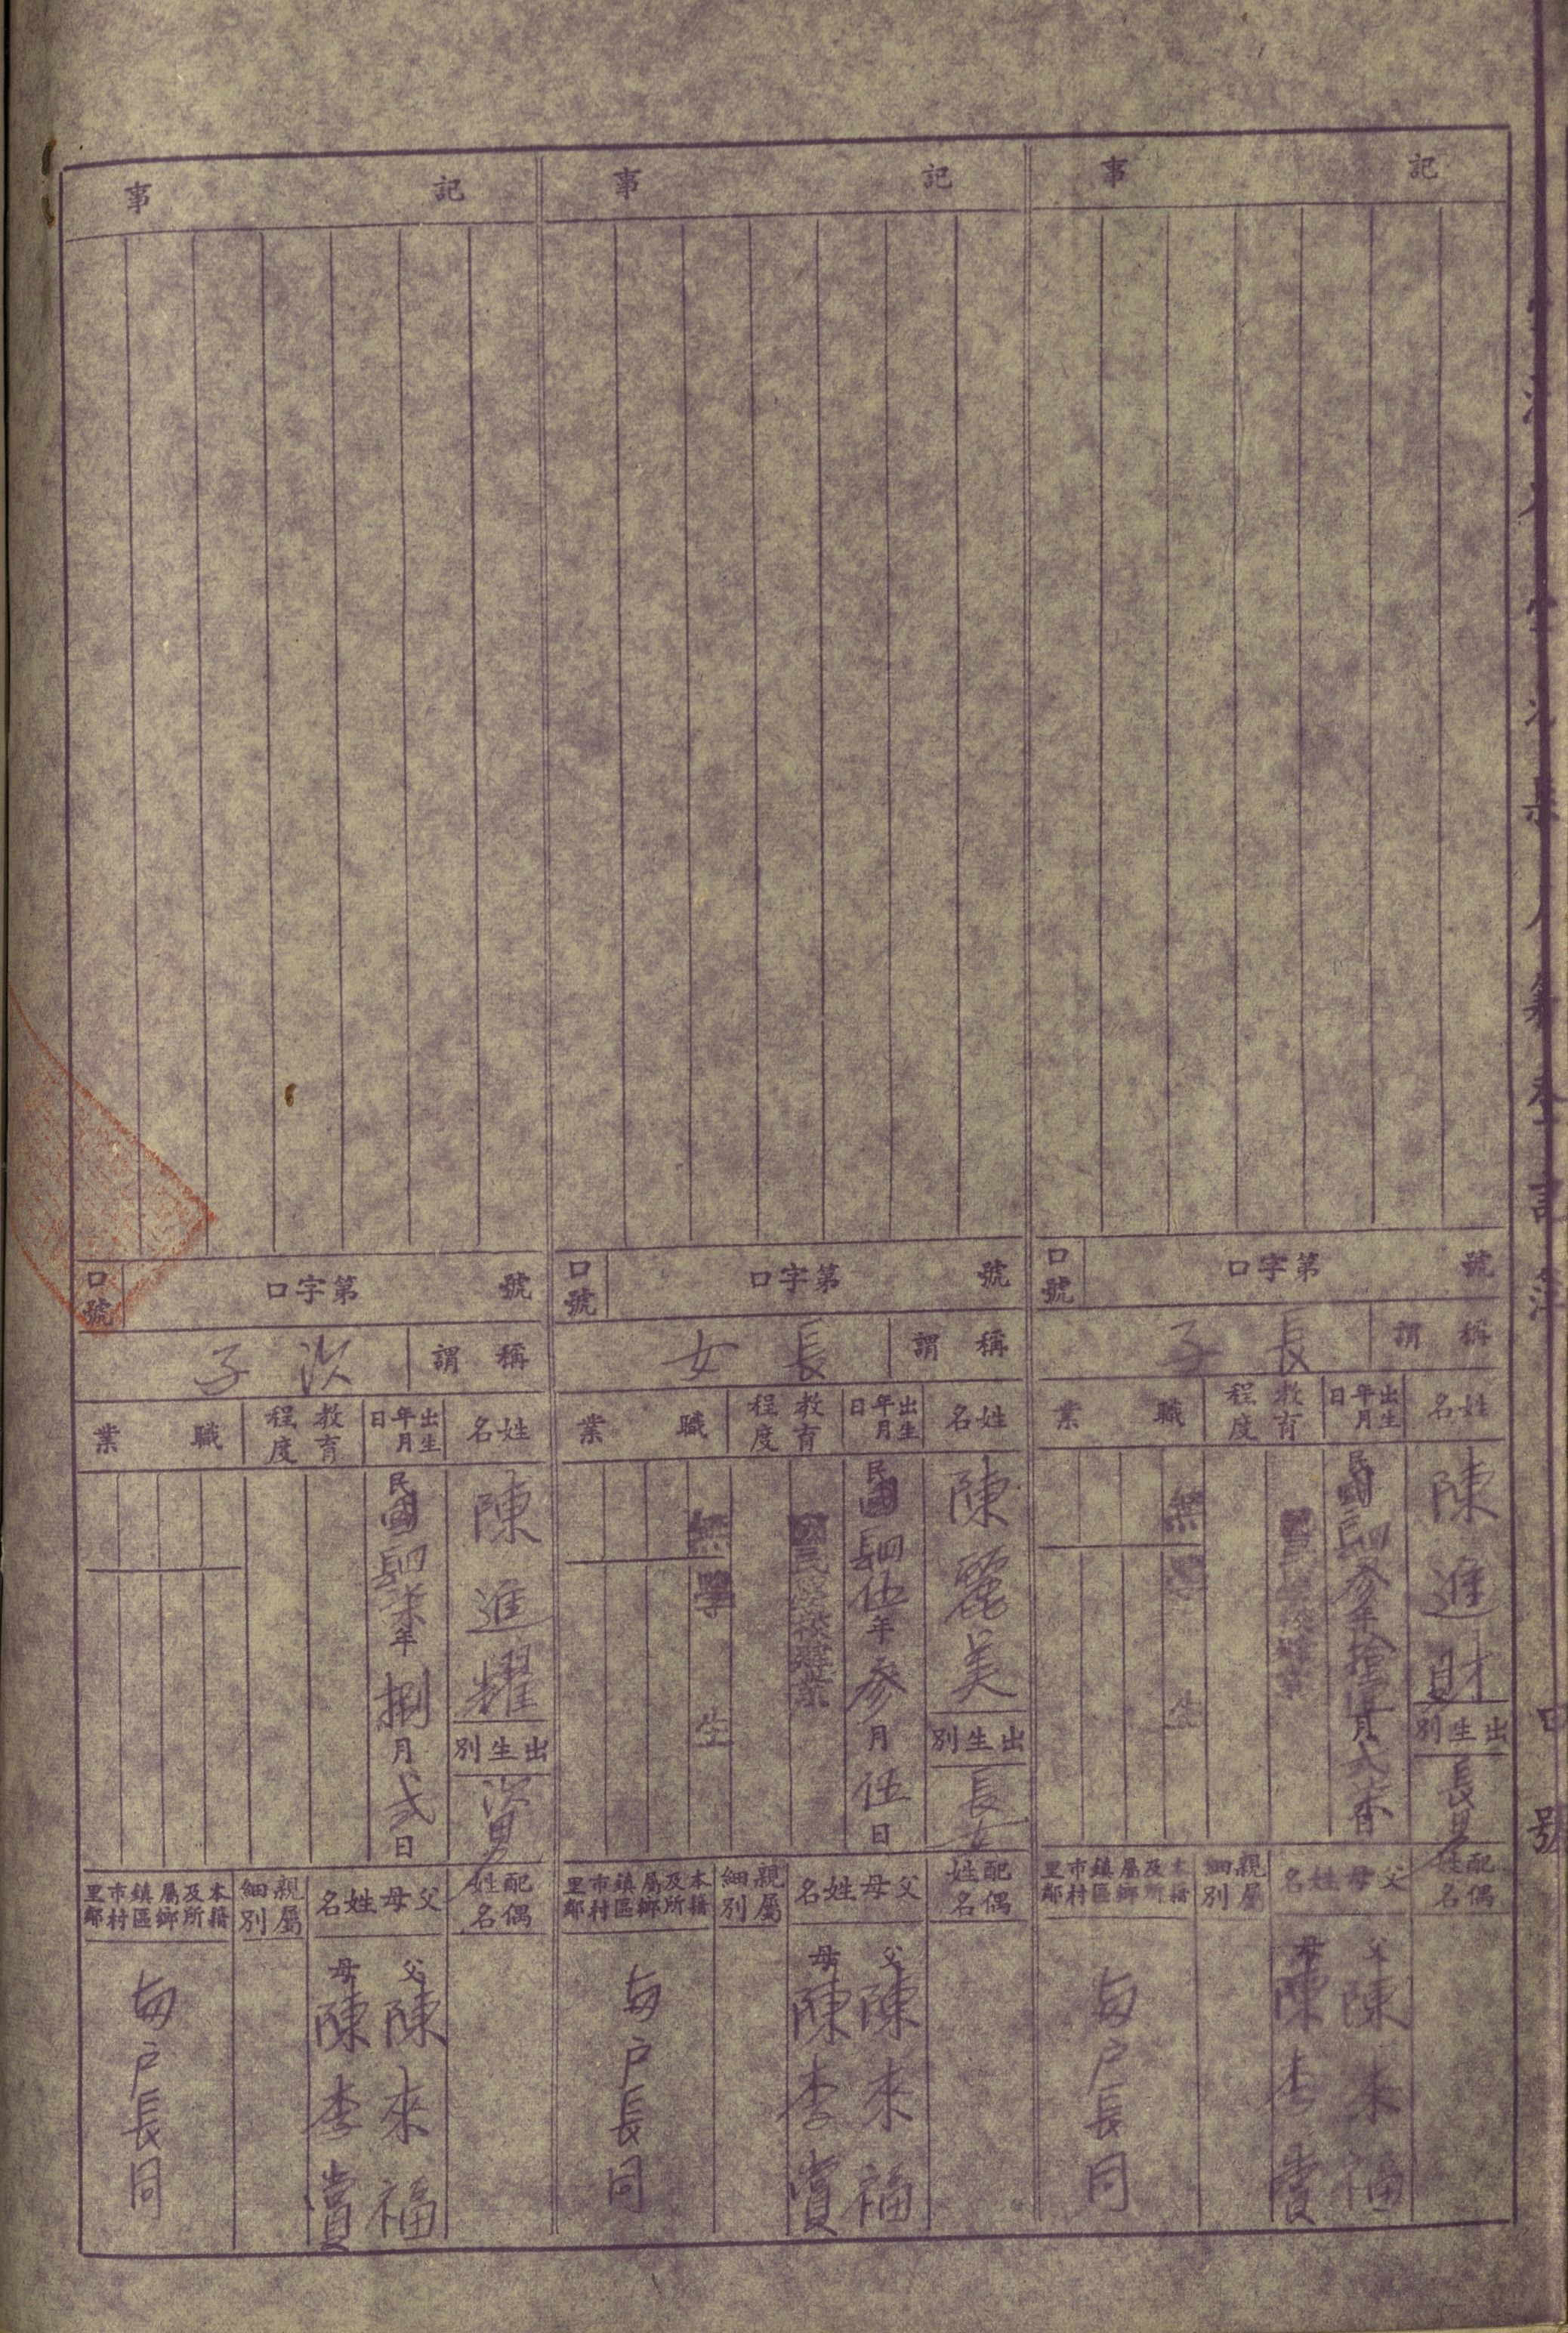 記事
第字口號
口號
稱謂 長子
姓名 陳進財
出生別 長男
出生年月日
教育程度
職業 無 生
配偶姓名
父母姓名
父 陳來福
母 陳李賞
親屬細別
本籍及所屬鄉鎮區市村里鄰
與戶長同
記事
第字口號
口號
稱謂 長女
姓名 陳麗美
出生別 長女
出生年月日 民國肆伍年參月伍日
教育程度
職業 無 學生
配偶姓名
父母姓名
父 陳來福
母 陳李賞
親屬細別
本籍及所屬鄉鎮區市村里鄰
與戶長同
記事
第字口號
口號
稱謂 次子
姓名 陳進耀
出生別 次男
出生年月日 民國肆柒年捌月弍日
教育程度
職業
配偶姓名
父母姓名
父 陳來福
母 陳李賞
親屬細別
本籍及所屬鄉鎮區市村里鄰
與戶長同